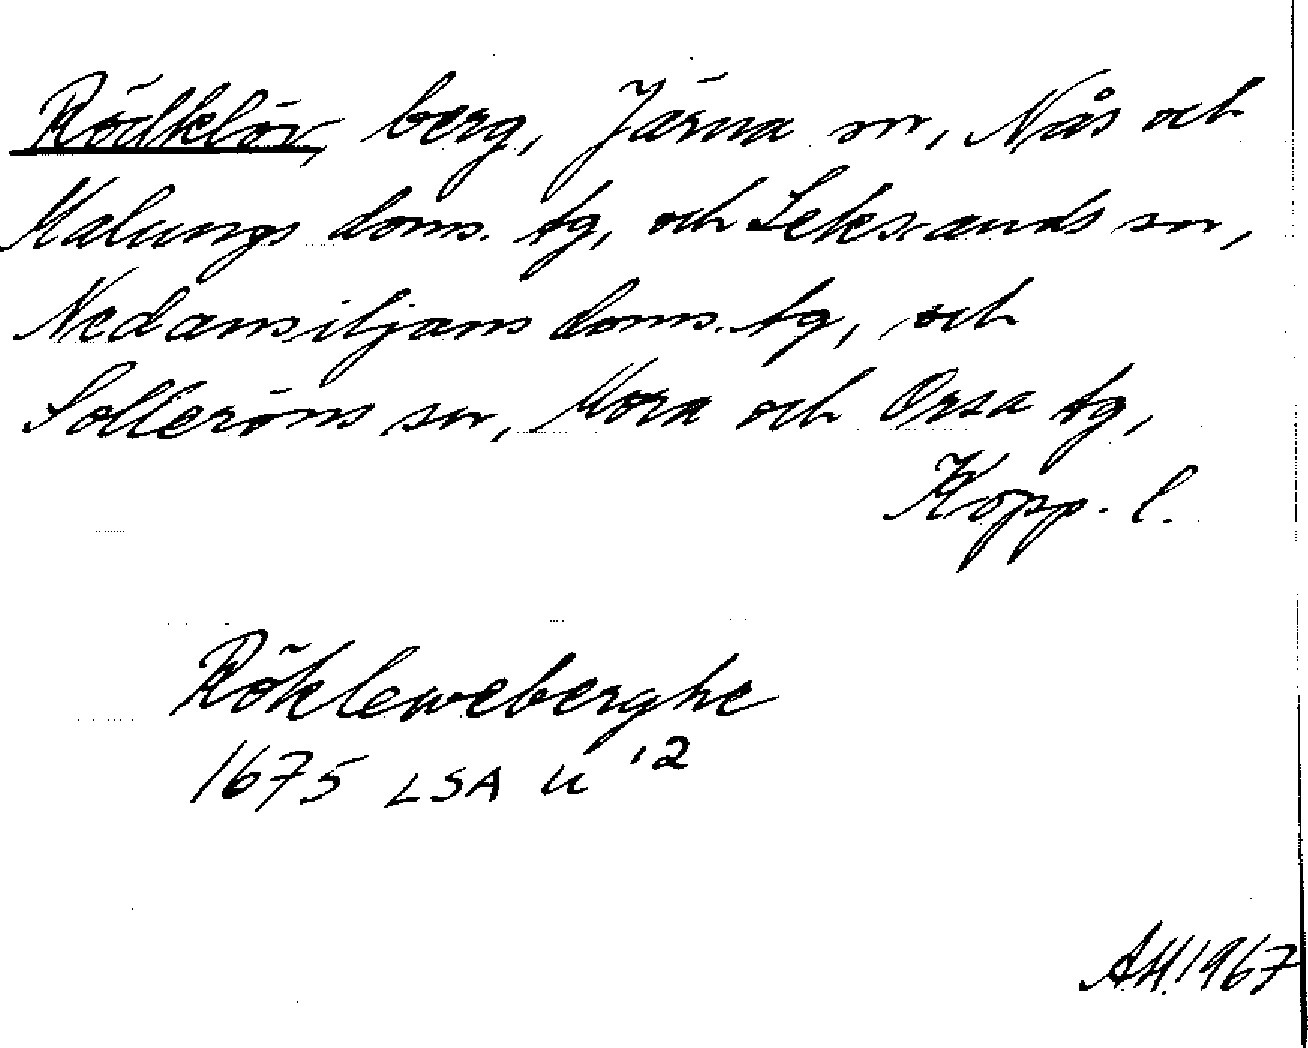 Rödklöv, berg, Järna sn, Nås och
Malungs doms. tg, och Leksands sn,
Nedansiljans doms. tg, och
Solleröns sn, Mora och Orsa tg,
Kopp. l.
Rökleweberghe
1675 LSA U '2
AH 1967